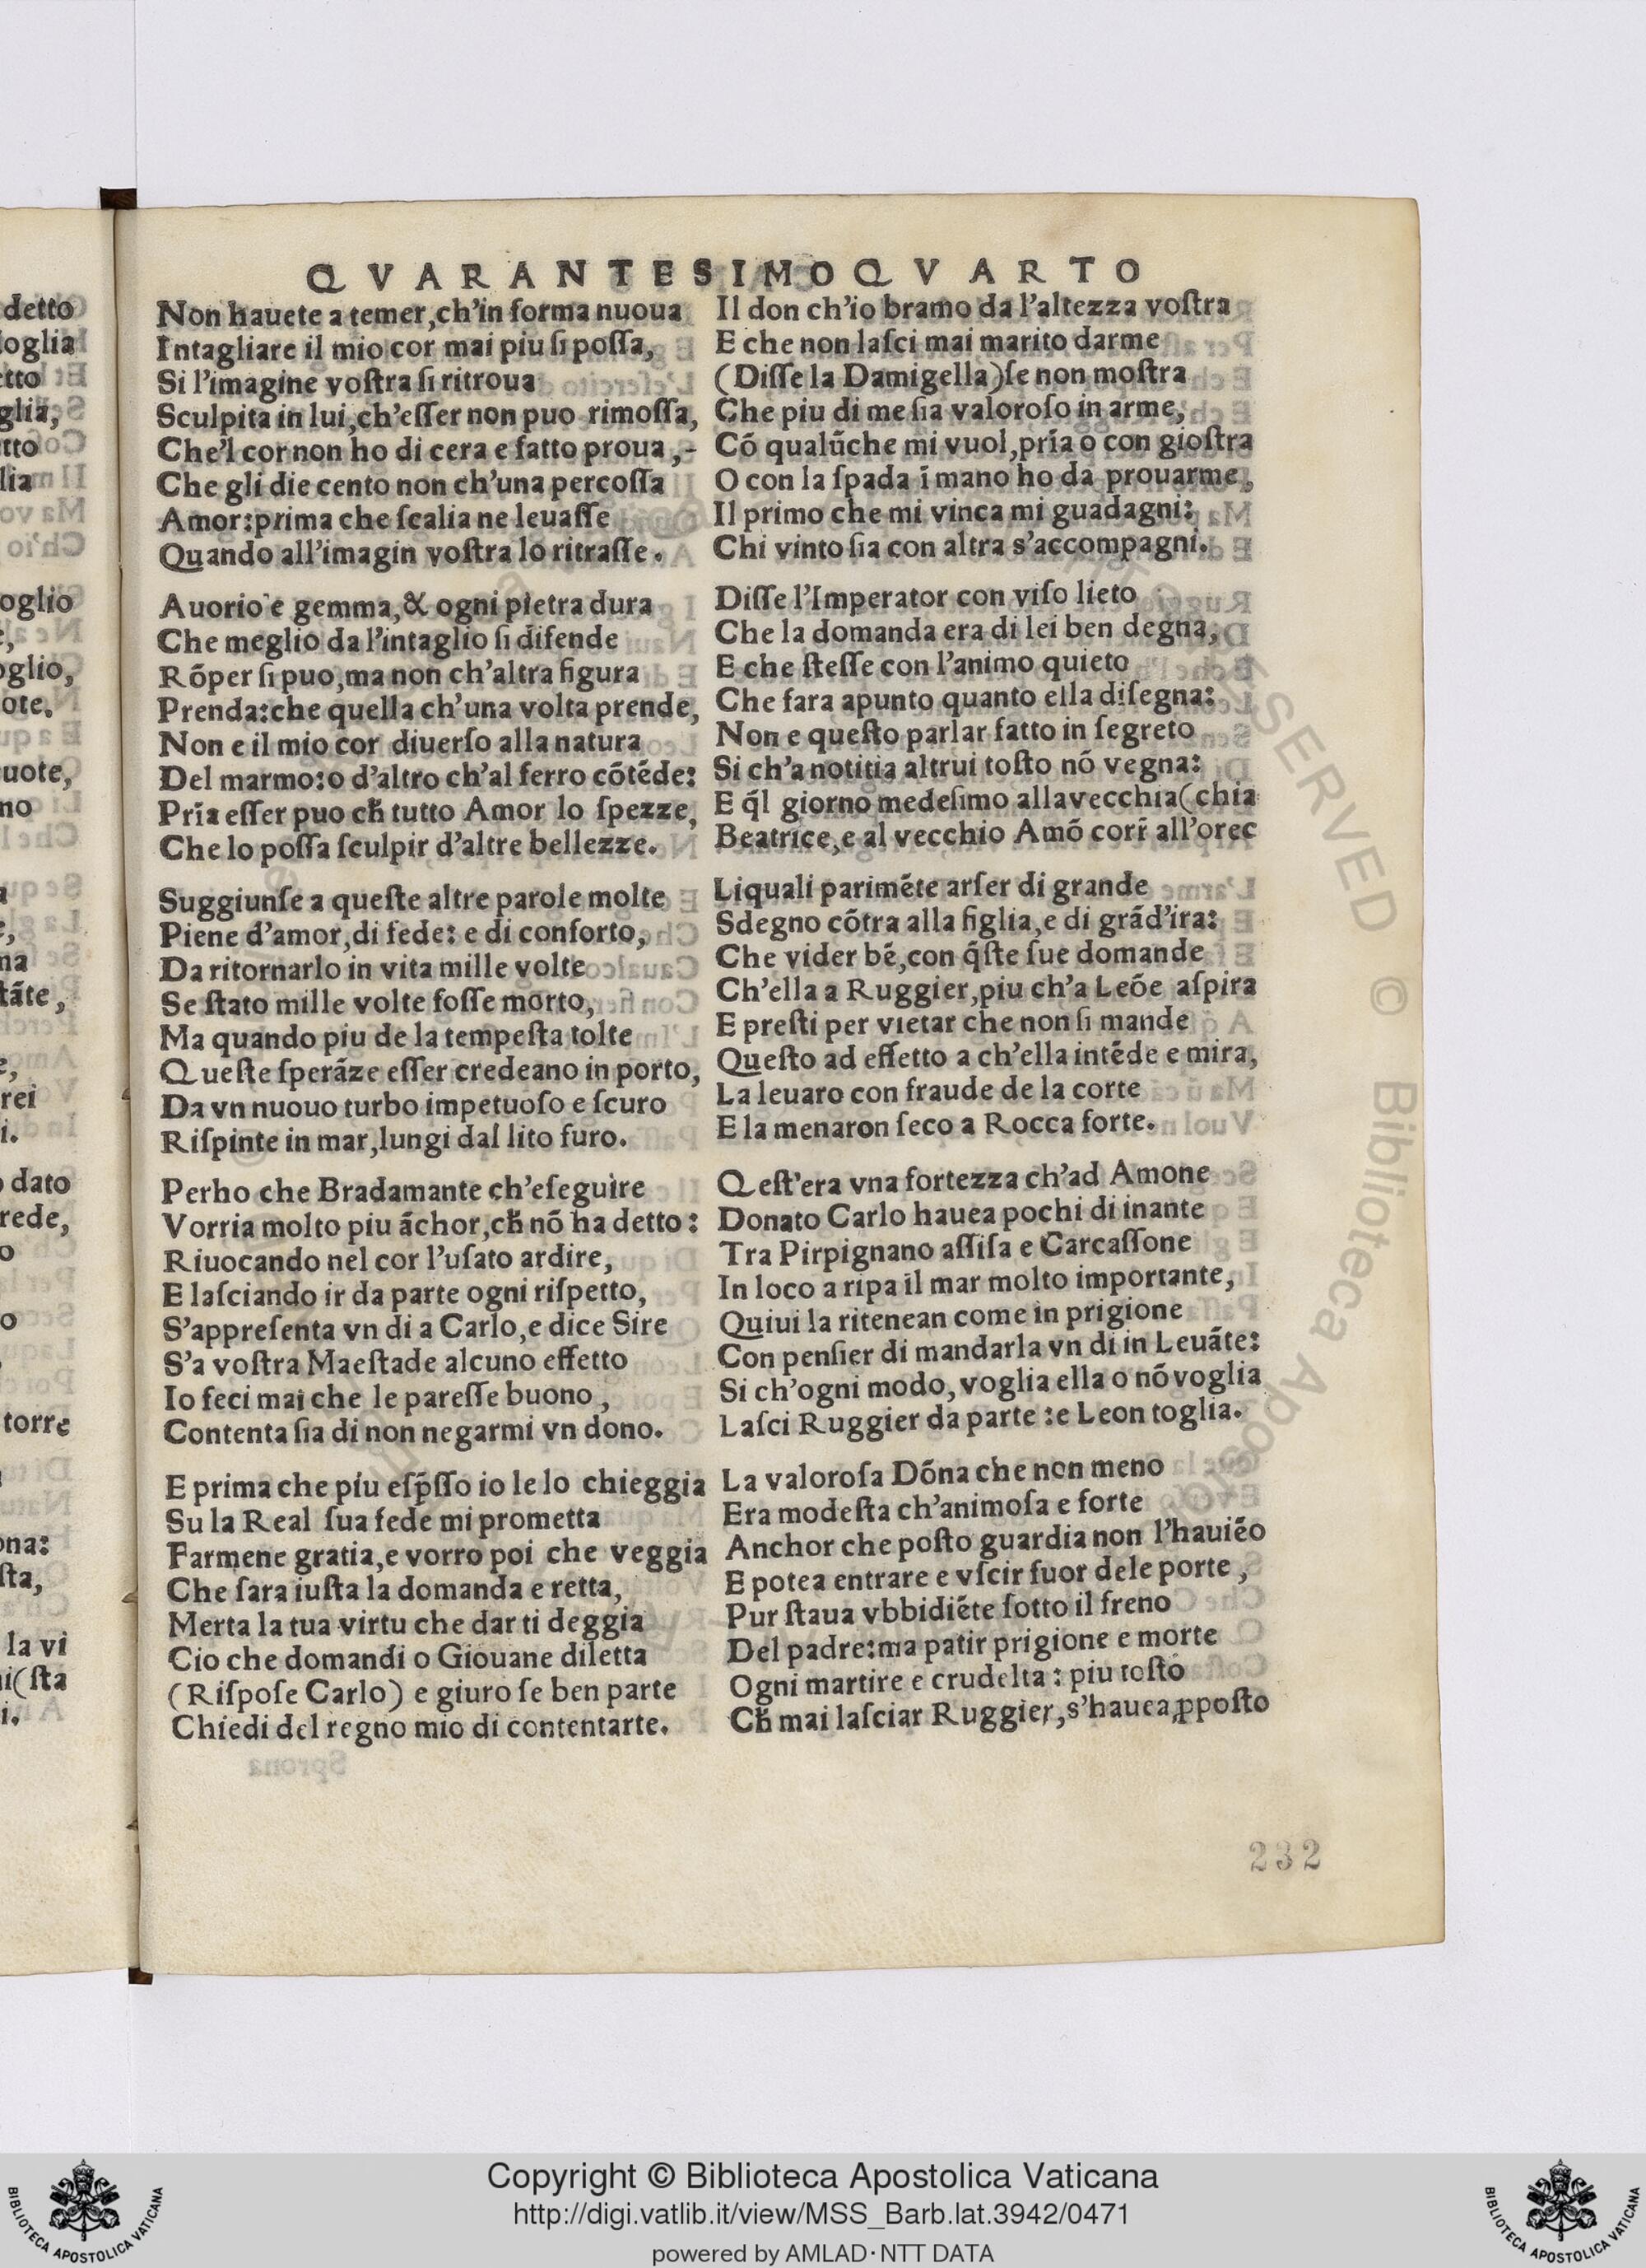 QVARANTESIMOQVARTO
Non hauete a temer,ch'in forma nuoua
Intagliare il mio cor mai piu ſi poſſa,
Si l'imagine voſtra ſi ritroua
Sculpita in lui,ch'eſſer non puo rimoſſa,
Che'l cor non ho di cera e fatto proua,-
Che gli die cento non ch'una percoſſa
Amor:prima che ſcalia ne leuaſſe
Quando all'imagin voſtra lo ritraſſe.
Auorio e gemma,& ogni pietra dura
Che meglio da l'intaglio ſi difende
Rõper ſi puo,ma non ch'altra figura
Prenda:che quella ch'una volta prende,
Non e il mio cor diuerſo alla natura
Del marmo:o d'altro ch'al ferro cõtẽde:
Pría eſſer puo cħ tutto Amor lo ſpezze,
Che lo poſſa ſculpir d'altre bellezze.
Suggiunſe a queſte altre parole molte
Piene d'amor,di fede: e di conforto,
Da ritornarlo in vita mille volte
Se ſtato mille volte foſſe morto,
Ma quando piu de la tempeſta tolte
Queſte ſperãze eſſer credeano in porto,
Da vn nuouo turbo impetuoſo e ſcuro
Riſpinte in mar,lungi dal lito furo.
Perho che Bradamante ch'eſeguire
Vorria molto piu ãchor,cħ nõ ha detto:
Riuocando nel cor l'uſato ardire,
E laſciando ir da parte ogni riſpetto,
S'appreſenta vn di a Carlo,e dice Sire
S'a voſtra Maeſtade alcuno effetto
Io feci mai che le pareſſe buono ,
Contenta ſia di non negarmi vn dono.
E prima che piu eſp̃ſſo io le lo chieggia
Su la Real ſua fede mi prometta
Farmene gratia,e vorro poi che veggia
Che ſara iuſta la domanda e retta,
Merta la tua virtu che dar ti deggia
Cio che domandi o Giouane diletta
(Riſpoſe Carlo) e giuro ſe ben parte
Chiedi del regno mio di contentarte.
Il don ch'io bramo da l'altezza voſtra
E che non laſci mai marito darme
(Diſſe la Damigella)ſe non moſtra
Che piu di me ſia valoroſo in arme,
Cõ qualũche mi vuol,pría o con gioſtra
O con la ſpada ĩ mano ho da prouarme,
Il primo che mi vinca mi guadagni:
Chi vinto ſia con altra s'accompagni.
Diſſe l'Imperator con viſo lieto
Che la domanda era di lei ben degna,
E che ſteſſe con l'animo quieto
Che fara apunto quanto ella diſegna:
Non e queſto parlar fatto in ſegreto
Si ch'a notitia altrui toſto nõ vegna:
E q̃l giorno medeſimo allavecchia(chia
Beatrice,e al vecchio Amõ corr̃ all'orec
Liquali parimẽte arſer di grande
Sdegno cõtra alla figlia,e di grãd'ira:
Che vider bẽ,con q̃ſte ſue domande
Ch'ella a Ruggier,piu ch'a Leõe aſpira
E preſti per vietar che non ſi mande
Queſto ad effetto a ch'ella intẽde e mira,
La leuaro con fraude de la corte
E la menaron ſeco a Rocca forte.
Qeſt'era vna fortezza ch'ad Amone
Donato Carlo hauea pochi di inante
Tra Pirpignano aſſiſa e Carcaſſone
In loco a ripa il mar molto importante,
Quiui la ritenean come in prigione
Con penſier di mandarla vn di in Leuãte:
Si ch'ogni modo, voglia ella o nõ voglia
Laſci Ruggier da parte :e Leon toglia.
La valoroſa Dõna che non meno
Era modeſta ch'animoſa e forte
Anchor che poſto guardia non l'hauiẽo
E potea entrare e vſcir fuor dele porte ,
Pur ſtaua vbbidiẽte ſotto il freno
Del padre:ma patir prigione e morte
Ogni martire e crudelta : piu toſto
Cħ mai laſciar Ruggier,s'hauea ꝓpoſto
232
Copyright © Biblioteca Apostolica Vaticana
http://digi.vatlib.it/view/MSS_Barb.lat.3942/0471
powered by AMLAD·NTT DATA
BIBLIOTECA APOSTOLICA VATICANA
BIBLIOTECA APOSTOLICA VATICANA